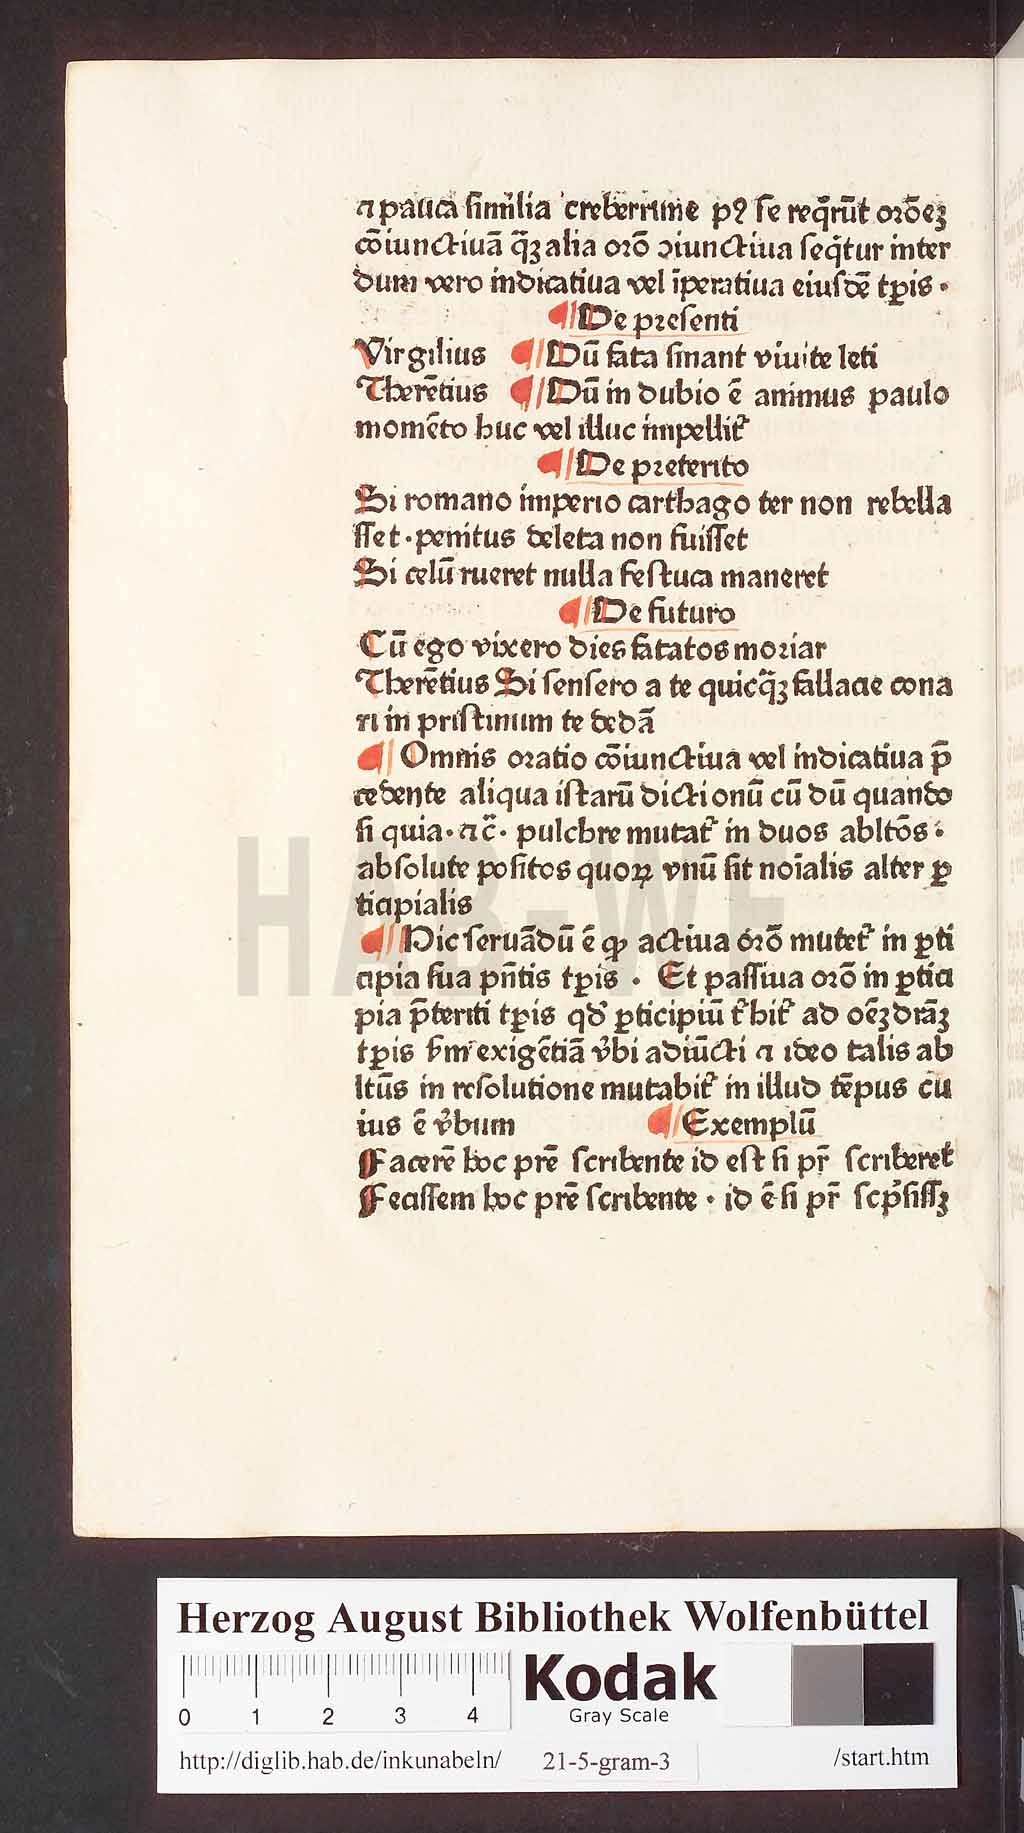 ⁊ pauca simĩlia creberrime pꝰ se reqͥrũt orõeꝫ
cõiunctiuã qͣ̃ꝫ alia orõ ↄiunctiua seqͥtur inter
dum vero indicatiua vel ĩperatiua eiusdẽ tꝑis ·
¶ De presenti
Virgilius ¶ Dũ fata sinant viuite leti
Therẽtius ¶ Dũ in dubio ẽ animus paulo
momẽto huc vel illuc impellitᷣ
¶ De preterito
Si romano imperio carthago ter non rebella
sset · penitus deleta non fuisset
Si celũ rueret nulla festuca maneret
¶ De futuro
Cũ ego vixero dies fatatos moriar
Therẽtius Si sensero a te quicqͣ̃ꝫ fallacie cona
ri in pristinum te dedã
¶ Omnis oratio cõiunctiua vel indicatiua p̃
cedente aliqua istarũ dictionũ cũ dũ quando
si quia · ⁊c̃ · pulchre mutatᷣ in duos abltõs ·
absolute positos quoꝝ vnũ sit noĩalis alter ꝑ
ticipialis
¶ Hic seruãdũ ẽ ꝙ actiua orõ mutetᷣ in ꝑti
cipia sua pñtis tꝑis · Et passiua orõ in ꝑtici
pia p̃teriti tꝑis qdͦ ꝑticipiũ tᷣhitᷣ ad oẽꝫ drãꝫ
tꝑis ẜm exigẽtiã vͦbi adiũcti ⁊ ideo talis ab
ltũs in resolutione mutabitᷣ in illud tẽpus cu
ius ẽ vͦbum ¶ Exemplũ
Facerẽ hoc prẽ scribente id est si pr̃ scriberet
Fecissem hoc prẽ scribente · id ẽ si pr̃ scpͥsissꝫ
HAB-WF
Herzog August Bibliothek Wolfenbüttel
0 1 2 3 4
Kodak
Gray Scale
http://diglib.hab.de/inkunabeln/ 21-5-gram-3 /start.htm